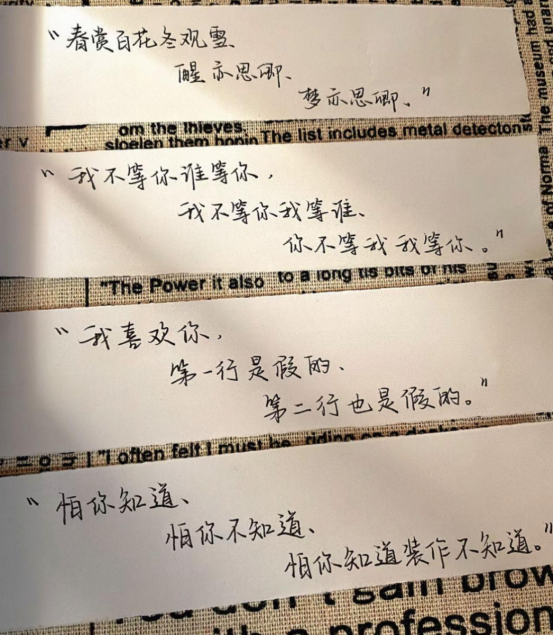 “春赏百花冬观雪、
醒亦思卿、
梦亦思卿、”
om the thieves.
The list includes metal detectors
“我不等你谁等你，
我不等你我等谁、
你不等我我等你。”
"The Power it also
to a long
“我喜欢你，
第一行是假的、
第二行也是假的。”
"I often felt I must be
“怕你知道、
怕你不知道、
怕你知道装作不知道。”
gain brow
with a profession
The museum had a
Norma